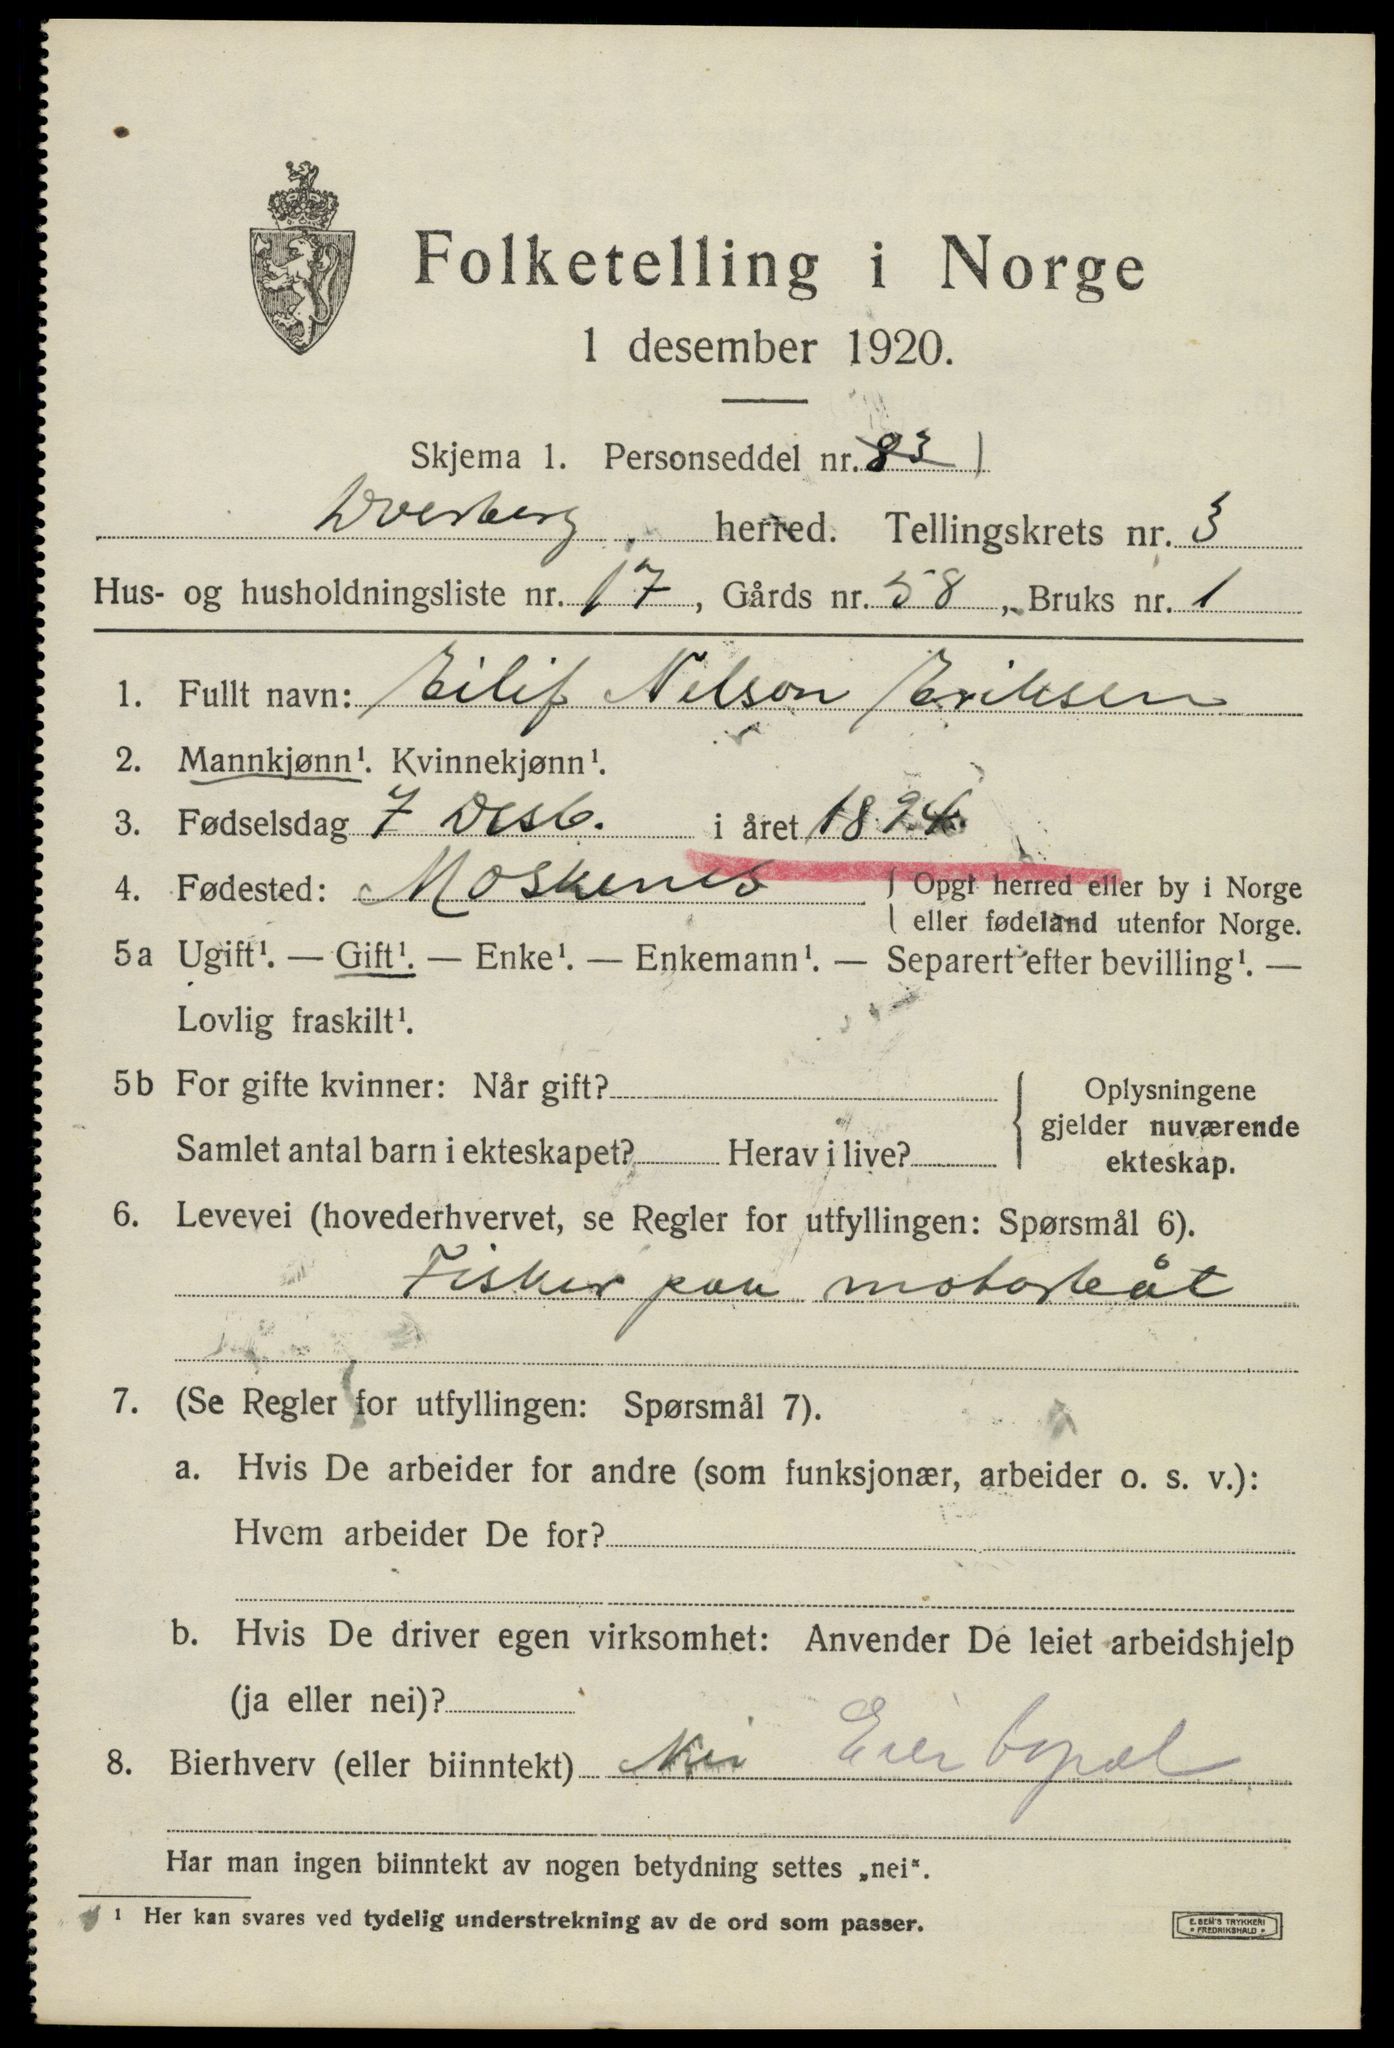 Folketelling i Norge
1 desember 1920.
Skjema 1. Personseddel nr. 83 1
Dverberg herred. Tellingskrets nr. 3
Hus- og husholdningsliste nr. 17, Gårds nr. 58, Bruks nr. 1
1. Fullt navn: Eilif Nelson Eriksen
2. Mannkjønn¹. Kvinnekjønn¹.
3. Fødselsdag 7 Desb. i året 1894.
4. Fødested: Moskenes { Opgi herred eller by i Norge
eller fødeland utenfor Norge.
5a Ugift¹. — Gift¹. — Enke¹. — Enkemann¹. — Separert efter bevilling¹. —
Lovlig fraskilt¹.
5b For gifte kvinner: Når gift? { Oplysningene
gjelder nuværende
Samlet antal barn i ekteskapet? Herav i live? ekteskap.
6. Levevei (hovederhvervet, se Regler for utfyllingen: Spørsmål 6).
Fisker paa motorbåt
7. (Se Regler for utfyllingen: Spørsmål 7).
a. Hvis De arbeider for andre (som funksjonær, arbeider o. s. v.):
Hvem arbeider De for?
b. Hvis De driver egen virksomhet: Anvender De leiet arbeidshjelp
(ja eller nei)?
8. Bierhverv (eller biinntekt) Nei Eier
Har man ingen biinntekt av nogen betydning settes „nei“.
¹ Her kan svares ved tydelig understrekning av de ord som passer.
E. SEM'S TRYKKERI
FREDRIKSHALD